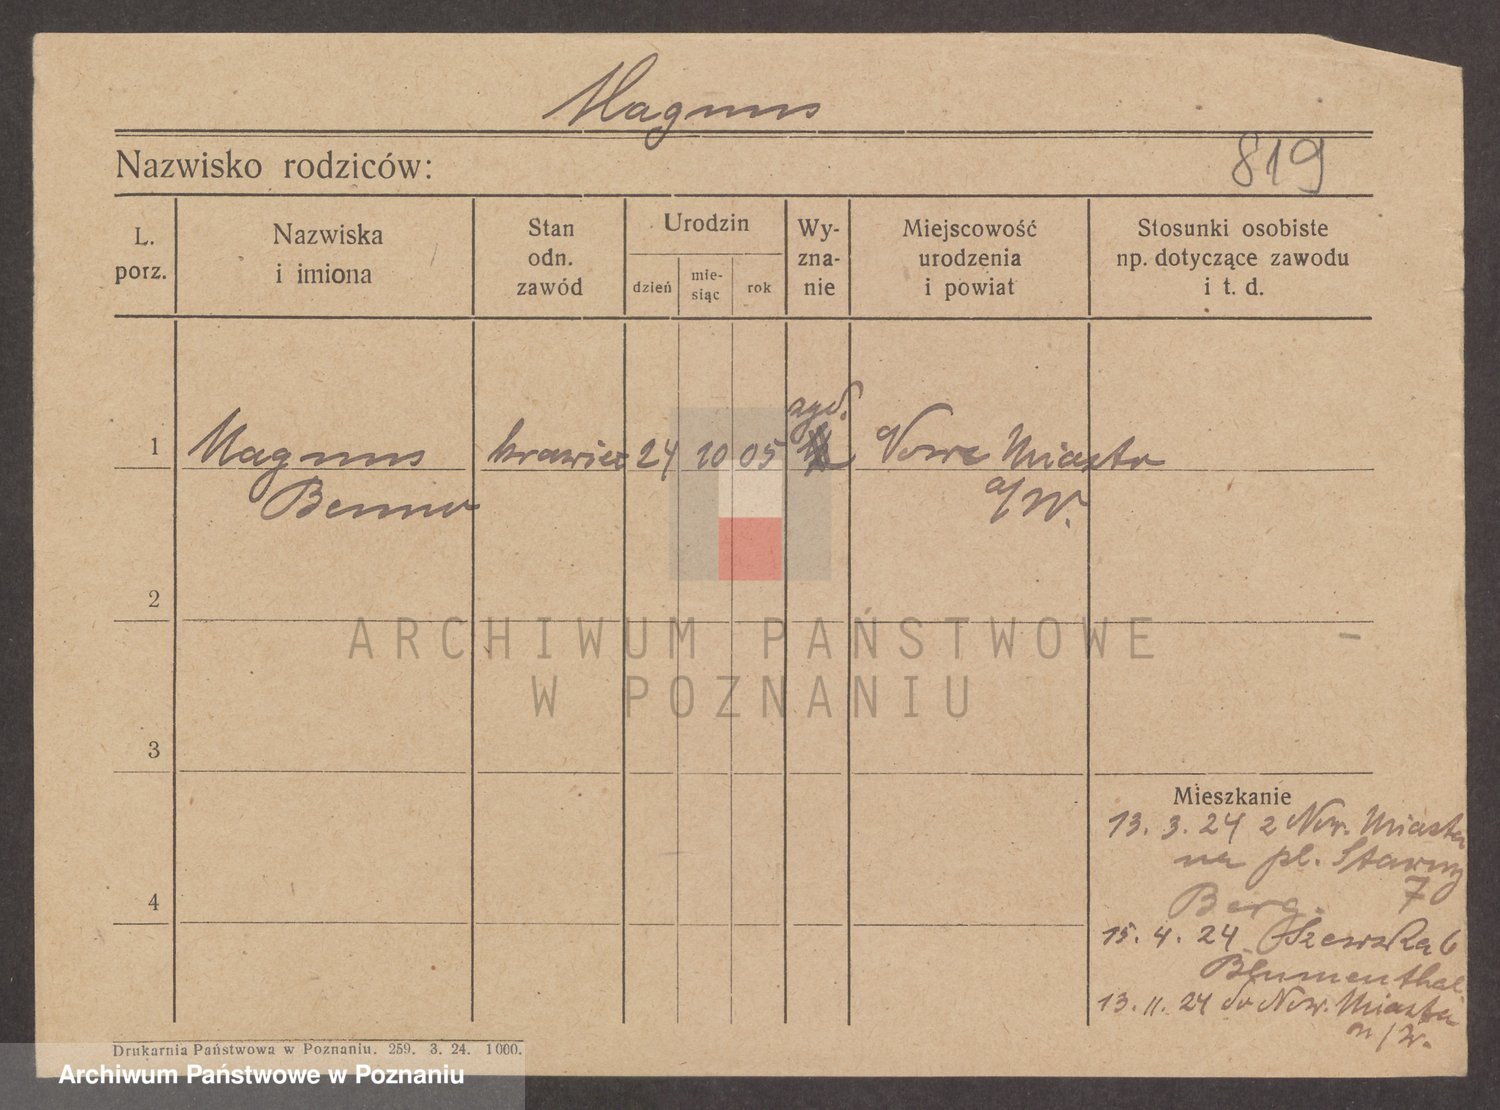 Magnus
Nazwisko rodziców:
819
L. porz.
Nazwiska i imiona
Stan odn. zawód
Urodzin
dzień
mie-siąc
rok
Wy-zna-nie
Miejscowość urodzenia i powiat
Stosunki osobiste np. dotyczące zawodu i t. d.
1
Magnus
Benno
krawiec
24
10
05
Nowe Miasto
n/W.
2
3
4
ARCHIWUM PAŃSTWOWE
W POZNANIU
Mieszkanie
13. 3. 24 z Now. Miasta
na pl. Stawny
7
Berg.
15. 4. 24 Szewska 6
Blumenthal
13. 11. 24 do Now. Miasta
n/W.
Drukarnia Państwowa w Poznaniu. 259. 3. 24. 1000.
Archiwum Państwowe w Poznaniu